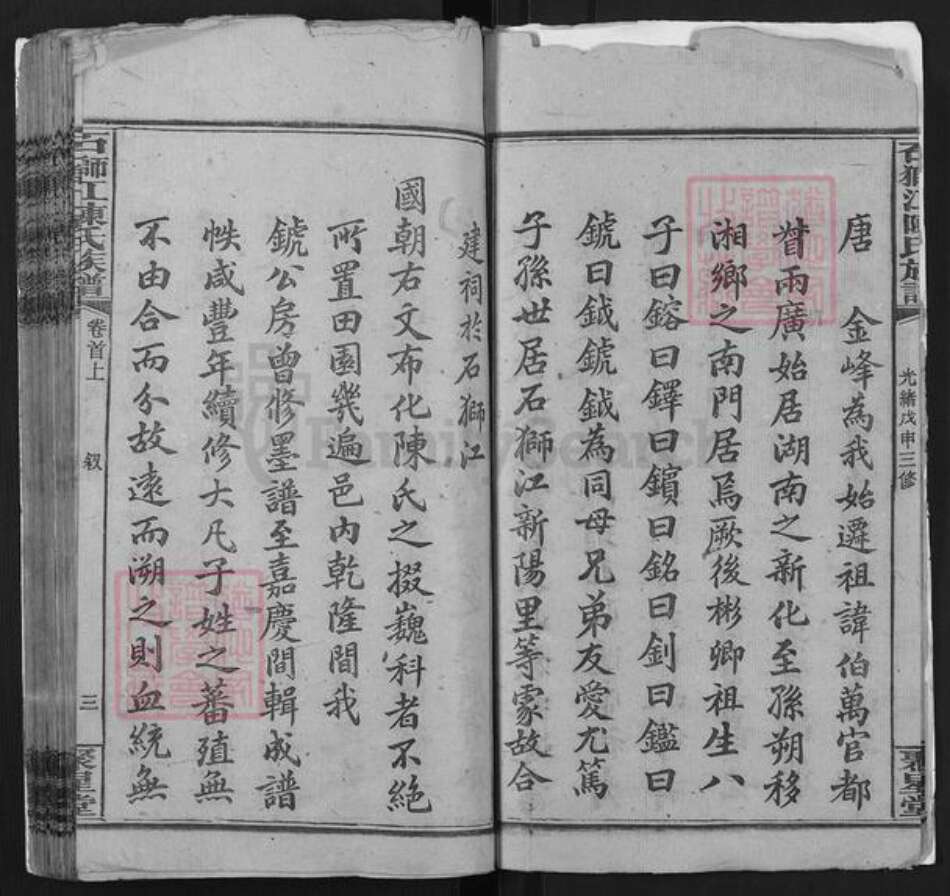 石獅江陳氏族譜
光緒戊申三修
聚星堂
唐 金峰為我始遷祖諱伯萬官都
督兩廣始居湖南之新化至孫朔移
湘鄉之南門居焉厥後彬卿祖生八
子曰鎔曰鐸曰鑌曰銘曰釗曰鑑曰
鋶曰鉞鋶鉞為同母兄弟友愛尤篤
子孫世居石獅江新陽里等處故合
建祠於石獅江
國朝右文布化陳氏之掇巍科者不絕
所置田園幾遍邑內乾隆間我
鋶公房曾修墨譜至嘉慶間輯成譜
帙咸豐年續修大凡子姓之蕃殖無
不由合而分故遠而溯之則血統無
石獅江陳氏族譜
卷首上
叙
三
聚星堂
FamilySearch